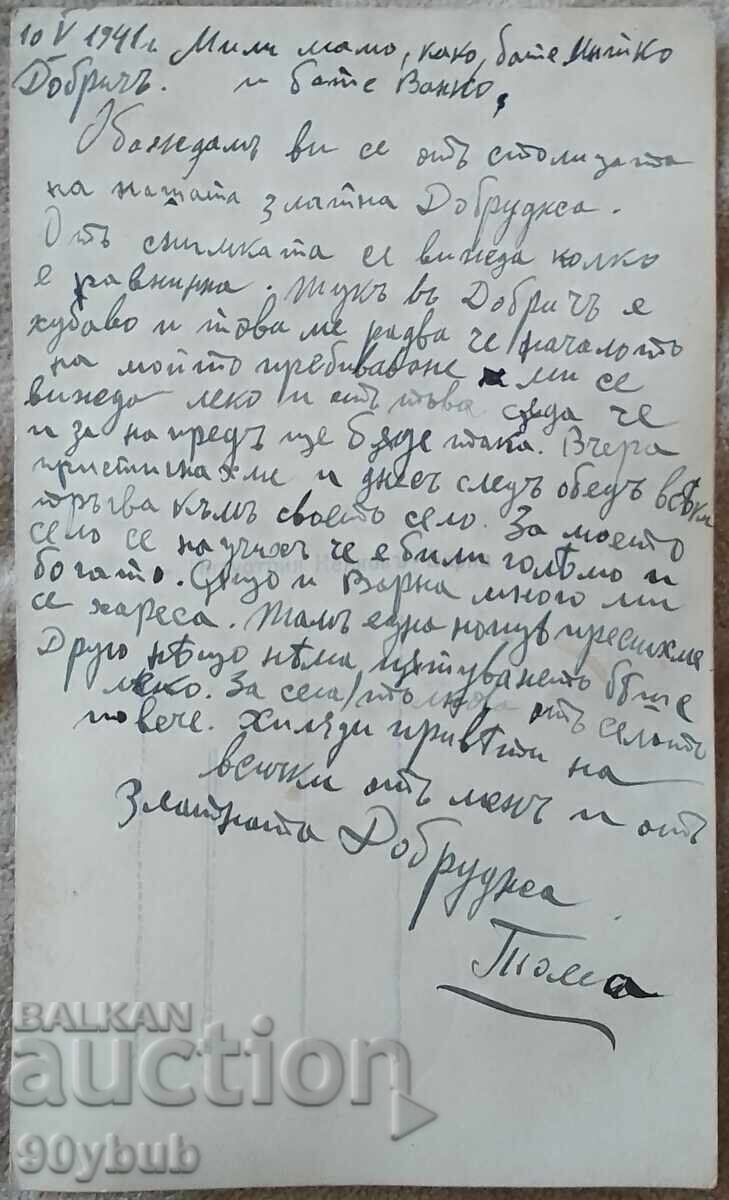 10 V 1941 г. Мили мамо, како, бате Митко
Добричъ. и бате Ванко,
Обаждамъ ви се отъ столицата
на нашата златна Добруджа.
Отъ снимката се вижда колко
е равнинна. Тукъ въ Добричъ е
хубаво и това ме радва че началото
на мойто пребиваване ми се
вижда леко и отъ това сѫдя че
и за напредъ ще бѫде така. Вчера
пристигнахме и днесъ следъ обедъ всѣки
тръгва къмъ своето село. За моето
село се научихъ че е били голѣмо и
богато. Също и Варна много ми
се хареса. Тамъ една нощъ преспахме.
Друго нѣщо нѣма, пѫтуването бѣше
леко. За сега толкова отъ селото
повече. Хиляди привѣти на
всички отъ менъ и отъ
Златната Добруджа
Тома
BALKAN
auction
90ybub